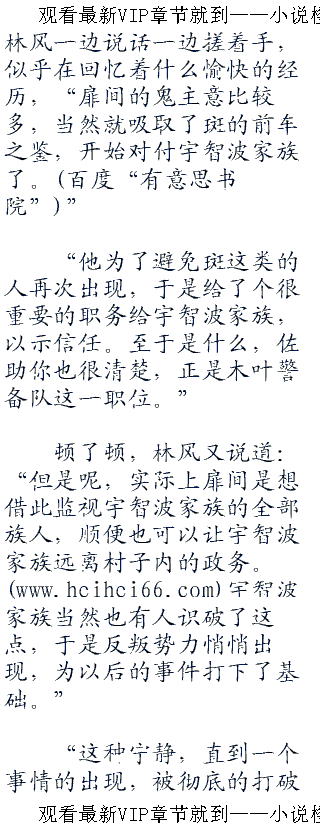 观看最新VIP章节就到——小说检
林风一边说话一边搓着手，
似乎在回忆着什么愉快的经
历，“扉间的鬼主意比较
多，当然就吸取了斑的前车
之鉴，开始对付宇智波家族
了。(百度“有意思书
院”)”
“他为了避免斑这类的
人再次出现，于是给了个很
重要的职务给宇智波家族，
以示信任。至于是什么，佐
助你也很清楚，正是木叶警
备队这一职位。”
顿了顿，林风又说道：
“但是呢，实际上扉间是想
借此监视宇智波家族的全部
族人，顺便也可以让宇智波
家族远离村子内的政务。
(www.hcihci66.com)宇智波
家族当然也有人识破了这
点，于是反叛势力悄悄出
现，为以后的事件打下了基
础。”
“这种宁静，直到一个
事情的出现，被彻底的打破
观看最新VIP章节就到——小说检